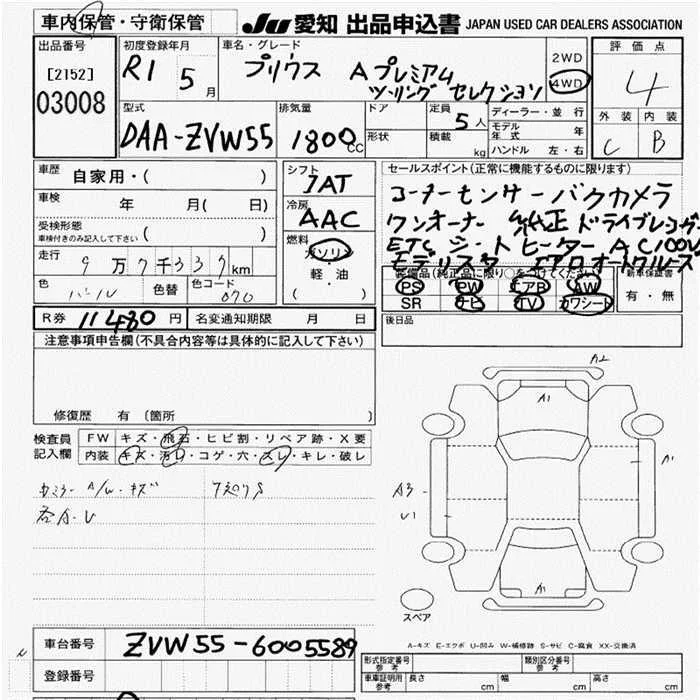 車内保管・守衛保管
JU 愛知 出品申込書 JAPAN USED CAR DEALERS ASSOCIATION
出品番号
[2152]
03008
初度登録年月
R1 5月
車名・グレード
プリウス Aプレミアム
ツーリング セレクション
2WD
4WD
評価点
4
外装 内装
C B
型式
DAA-ZVW55
排気量
1800cc
ドア
形状
定員
5人
積載
kg
ディーラー・並行
モデル年式 年
ハンドル 左・右
車歴
自家用・( )
車検
年 月( 日)
受検形態
車検付きのみ記入して下さい ( )
走行
9万7千337km
色
パール
色替
色コード
070
シフト
7AT
冷房
AAC
燃料
ガソリン
軽・油
( )
セールスポイント(正常に機能するものに限ります)
コーナーセンサー バックカメラ
ワンオーナー 純正ドライブレコーダー
ETC シートヒーター AC100V
モデリスタ エアロ オートクルーズ
装備品(純正品に限り○をつけてください)
PS PW エアB AW
SR ナビ TV カワシート
新車保証書
有・無
後日品
R券 11480円
名変通知期限 月 日
注意事項申告欄(不具合内容等は具体的に記入して下さい)
修復歴 有 〔箇所 〕
検査員記入欄
FW キズ・飛石・ヒビ割・リペア跡・X要
内装 キズ・汚レ・コゲ・穴・スレ・キレ・破レ
A/W・キズ
各A・U
A2
A1
A1
A3
U1
A1
スペア
A-キズ E-エクボ U-凹み W-補修跡 S-サビ C-腐食 XX-交換済
車台番号
ZVW55-6005589
登録番号
形式指定番号 参考
類別区分番号 参考
車庫証明用 参考
長さ cm
幅 cm
高さ cm